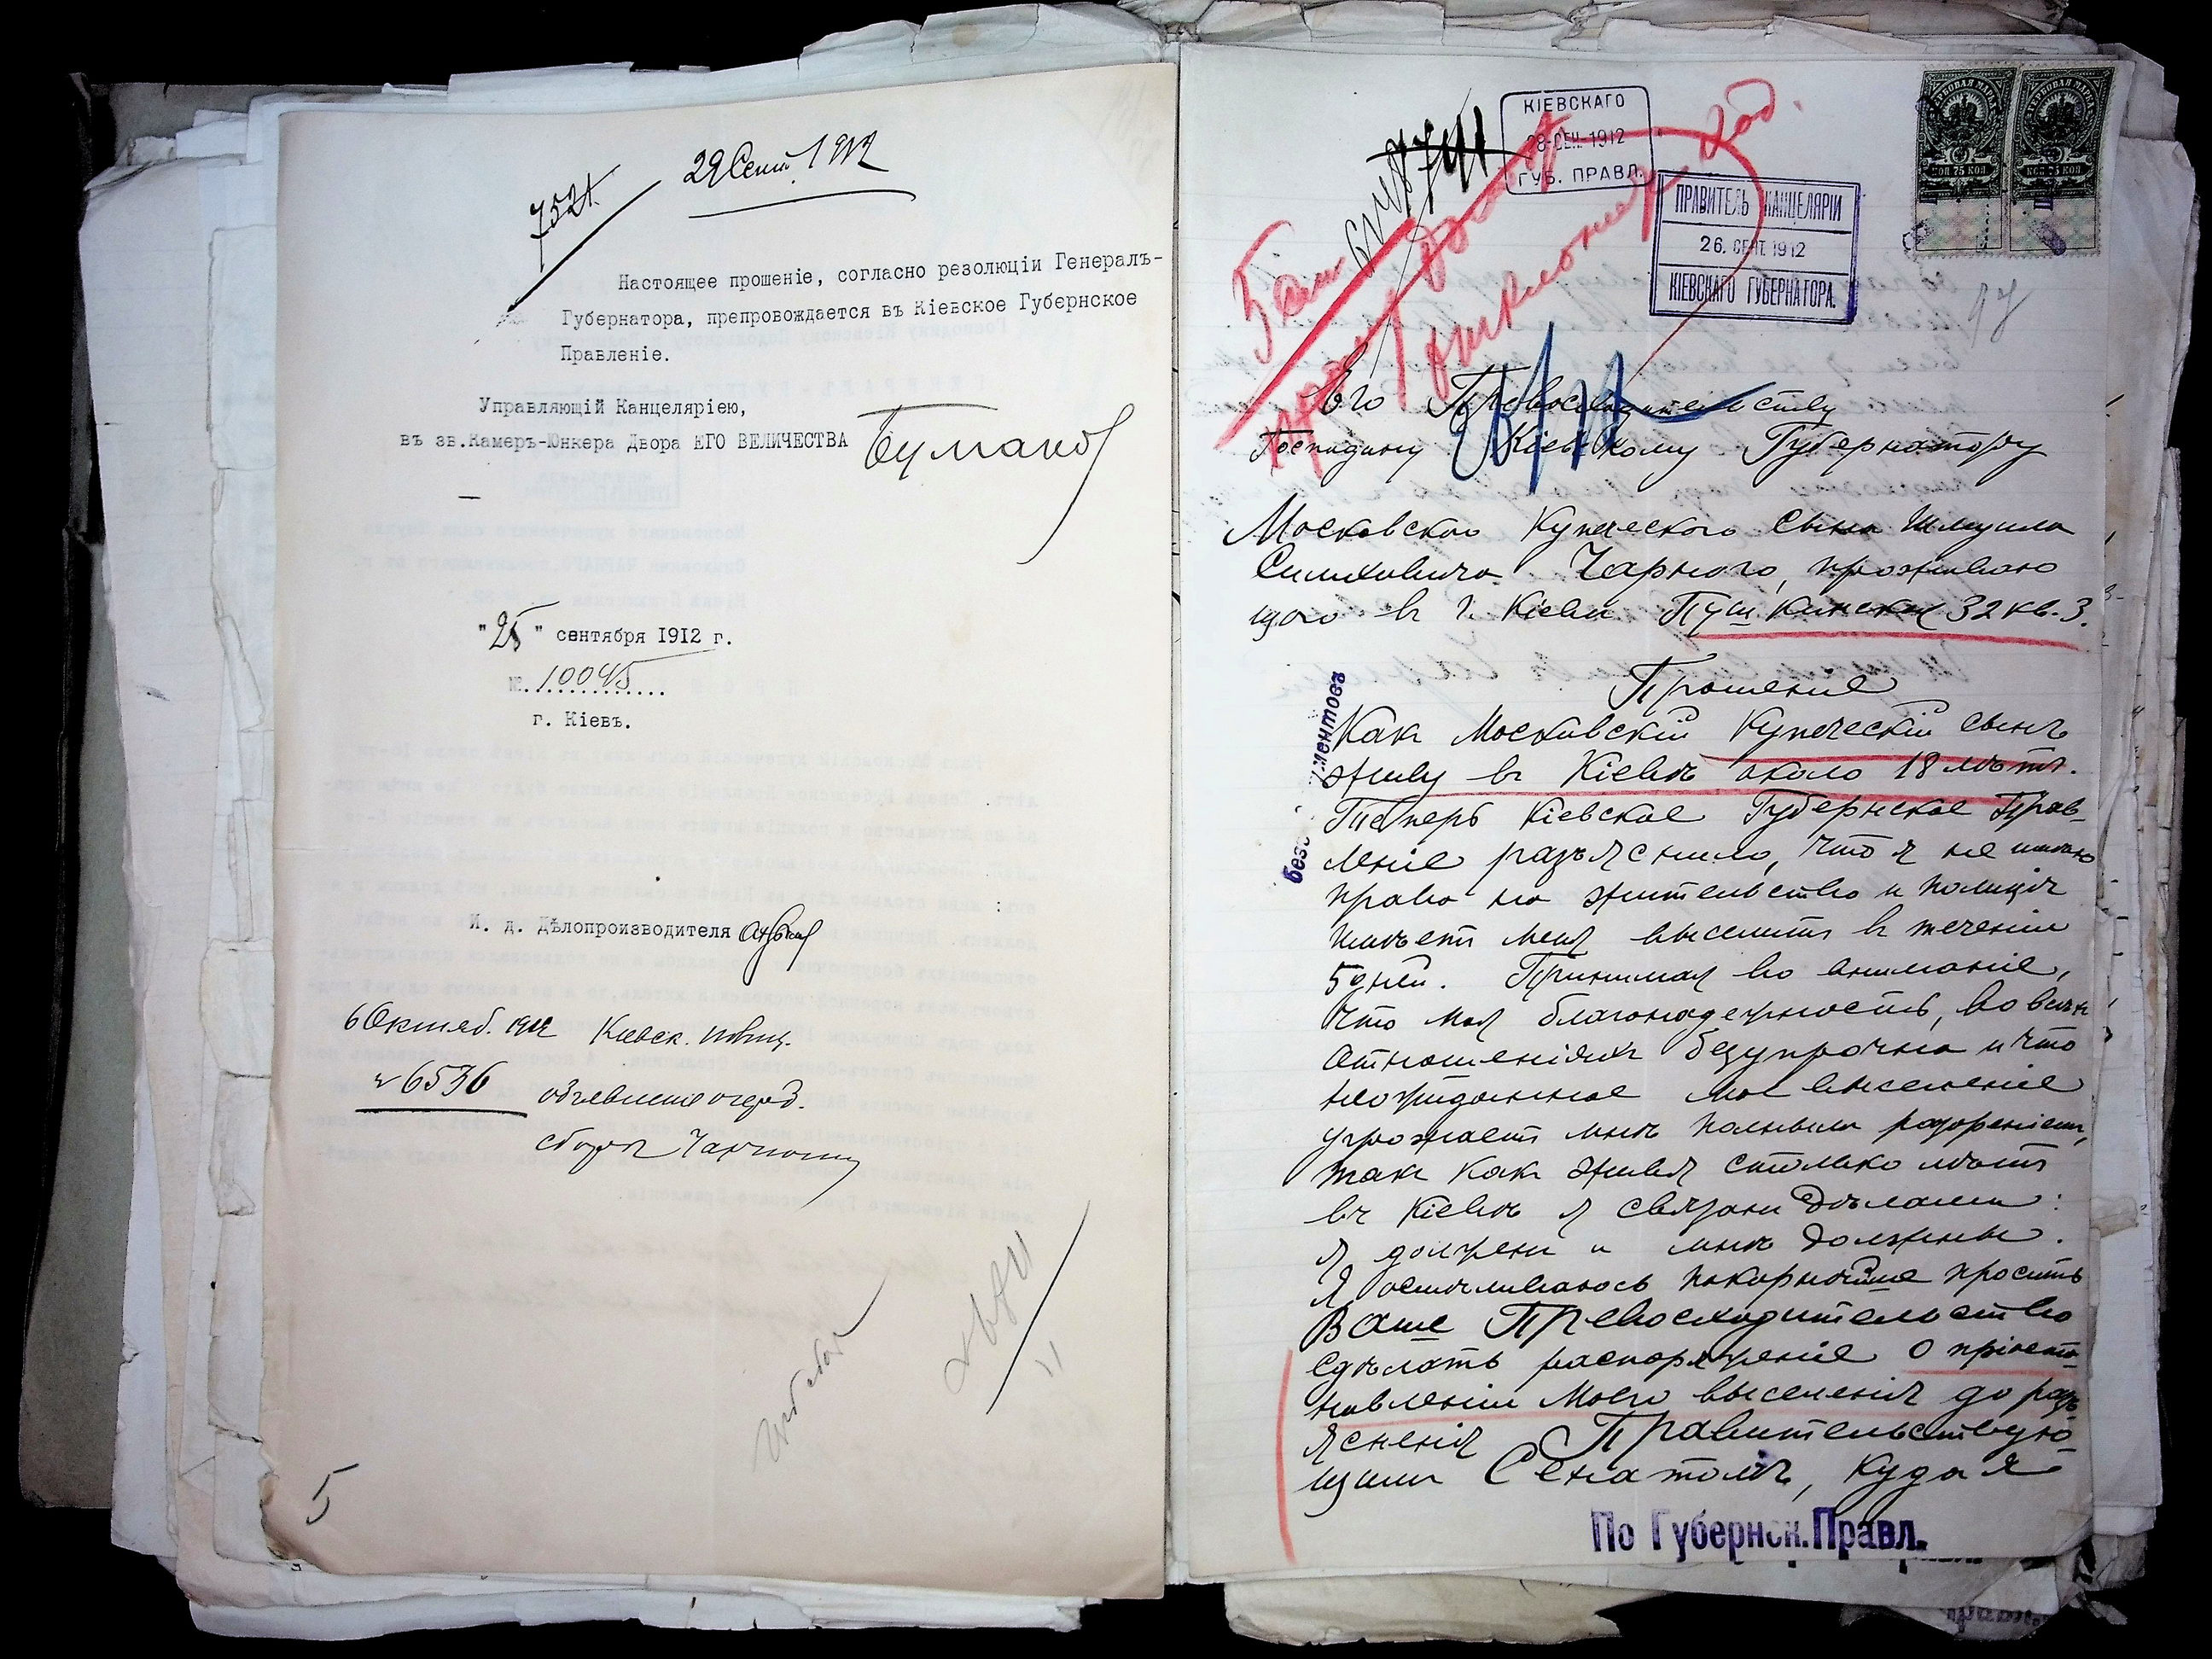 29 Сент. 1912
7521
Настоящее прошеніе, согласно резолюціи Генералъ-
Губернатора, препровождается въ Кіевское Губернское
Правленіе.
Управляющій Канцеляріею,
въ зв.Камеръ-Юнкера Двора ЕГО ВЕЛИЧЕСТВА
"25" сентября 1912 г.
№ 10045
г. Кіевъ.
И. д. Дѣлопроизводителя
6 Октяб. 1912 Киевск. полиц.
№ 6536
сбора Чарному
5
КІЕВСКАГО
28 СЕН 1912
ГУБ. ПРАВЛ.
ПРАВИТЕЛЬ КАНЦЕЛЯРІИ
26. СЕНТ. 1912
КІЕВСКАГО ГУБЕРНАТОРА.
ГЕРБОВАЯ МАРКА
КОП 75 КОП
ГЕРБОВАЯ МАРКА
КОП 75 КОП
17
Его Превосходительству
Господину Кіевскому Губернатору
Московскаго Купеческаго Сына Шмуила
Чарнаго, проживаю
щаго въ г. Кіеве Пушкинская 32 кв. 3.
Прошеніе
Как Московскій Купеческій сынъ
живу въ Кіевѣ около 18 лѣтъ.
Теперь Кіевское Губернское Прав
леніе разъяснило, что я не имѣю
право на жительство и полиція
имѣетъ меня выселить в теченіи
5 дней. Принимая во вниманіе,
что моя благонадежность, во всѣхъ
отношеніяхъ безупречна и что
неожиданное мое выселеніе
угрожает мнѣ полным разореніем,
так как живя столько лѣтъ
въ Кіевѣ я связанъ дѣлами:
я долженъ и мнѣ должны.
Я осмѣливаюсь покорнѣйше просить
Ваше Превосходительство
сдѣлать распоряженіе о пріоста
новленіи моего выселенія до разъ
ясненія Правительствую
щимъ Сенатомъ, куда я
По Губернск.Правл.